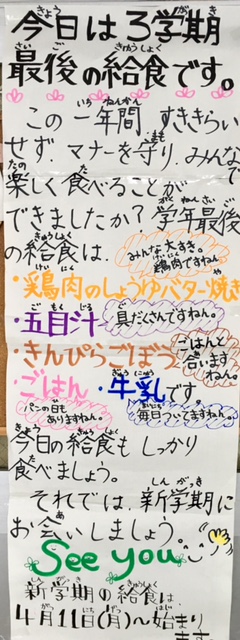 今日は3学期
最後の給食です。
この一年間 すききらい
せず、マナーを守り、みんなで
楽しく食べることが
できましたか？学年最後
の給食は、
みんな大好き。
鶏肉ですねん。
・鶏肉のしょうゆバター焼き
・五目汁
具だくさんですねん。
・きんぴらごぼう
ごはんと
合います
ねん。
・ごはん
・牛乳です
パンの日も
ありますねん。
毎日ついてますねん。
今日の給食も しっかり
食べましょう。
それでは、新学期に
お会いしましょう。
See you
新学期の給食は
4月11日(月)〜始まり
ます